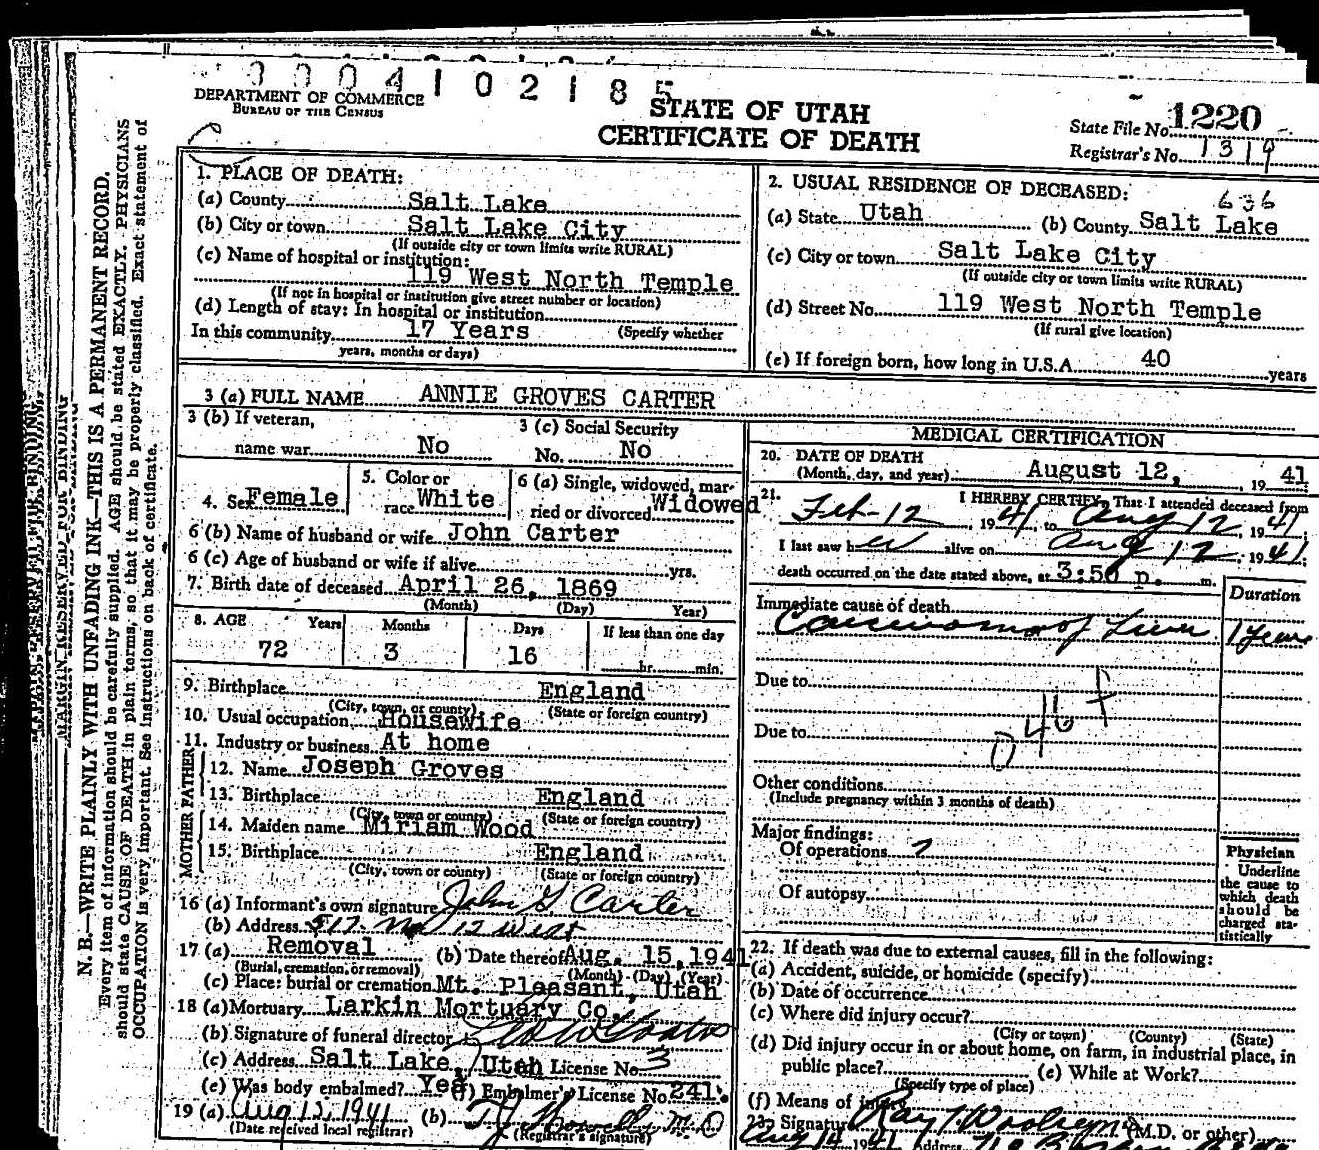 0004102185
DEPARTMENT OF COMMERCE
BUREAU OF THE CENSUS
STATE OF UTAH
CERTIFICATE OF DEATH
State File No. 1220
Registrar's No. 1319
1. PLACE OF DEATH:
(a) County Salt Lake
(b) City or town Salt Lake City
(If outside city or town limits write RURAL)
(c) Name of hospital or institution:
119 West North Temple
(If not in hospital or institution give street number or location)
(d) Length of stay: In hospital or institution
In this community 17 Years (Specify whether
years, months or days)
2. USUAL RESIDENCE OF DECEASED:
636
(a) State Utah (b) County Salt Lake
(c) City or town Salt Lake City
(If outside city or town limits write RURAL)
(d) Street No. 119 West North Temple
(If rural give location)
(e) If foreign born, how long in U.S.A. 40 years
3 (a) FULL NAME ANNIE GROVES CARTER
3 (b) If veteran,
name war No
3 (c) Social Security
No. No
4. Sex Female
5. Color or
race White
6 (a) Single, widowed, mar-
ried or divorced Widowed
6 (b) Name of husband or wife John Carter
6 (c) Age of husband or wife if alive yrs.
7. Birth date of deceased April 26, 1869
(Month) (Day) Year)
8. AGE Years Months Days If less than one day
72 3 16 hr. min.
9. Birthplace England
(City, town, or county) (State or foreign country)
10. Usual occupation Housewife
11. Industry or business At home
FATHER
12. Name Joseph Groves
13. Birthplace England
(City, town or county) (State or foreign country)
MOTHER
14. Maiden name Miriam Wood
15. Birthplace England
(City, town or county) (State or foreign country)
16 (a) Informant's own signature John G Carter
(b) Address 517 No 12 West
17 (a) Removal (b) Date thereof Aug. 15, 1941
(Burial, cremation, or removal) (Month) (Day) (Year)
(c) Place: burial or cremation Mt. Pleasant, Utah
18 (a) Mortuary Larkin Mortuary Co.
(b) Signature of funeral director
(c) Address Salt Lake, Utah License No. 3
(e) Was body embalmed? Yes (f) Embalmer's License No. 241.
19 (a) Aug 15, 1941 (b) M.D.
(Date received local registrar) (Registrar's signature)
MEDICAL CERTIFICATION
20. DATE OF DEATH
(Month, day, and year) August 12, 19 41
21. I HEREBY CERTIFY, That I attended deceased from
Feb-12, 19 41 to Aug 12, 19 41
I last saw h er alive on Aug 12, 19 41;
death occurred on the date stated above, at 3:50 p. m.
Duration
Immediate cause of death
Carcinoma of Liver 1 Year
Due to
Due to
046 f
Other conditions
(Include pregnancy within 3 months of death)
Major findings:
Of operations
Of autopsy
Physician
Underline
the cause to
which death
should be
charged sta-
tistically
22. If death was due to external causes, fill in the following:
(a) Accident, suicide, or homicide (specify)
(b) Date of occurrence
(c) Where did injury occur?
(City or town) (County) (State)
(d) Did injury occur in or about home, on farm, in industrial place, in
public place? (e) While at Work?
(Specify type of place)
(f) Means of injury
23. Signature Ray T Woolsey (M.D. or other)
Aug 14 1941 Address
MARGIN RESERVED FOR BINDING
N. B.—WRITE PLAINLY WITH UNFADING INK—THIS IS A PERMANENT RECORD.
Every item of information should be carefully supplied. AGE should be stated EXACTLY. PHYSICIANS
should state CAUSE OF DEATH in plain terms, so that it may be properly classified. Exact statement of
OCCUPATION is very important. See instructions on back of certificate.